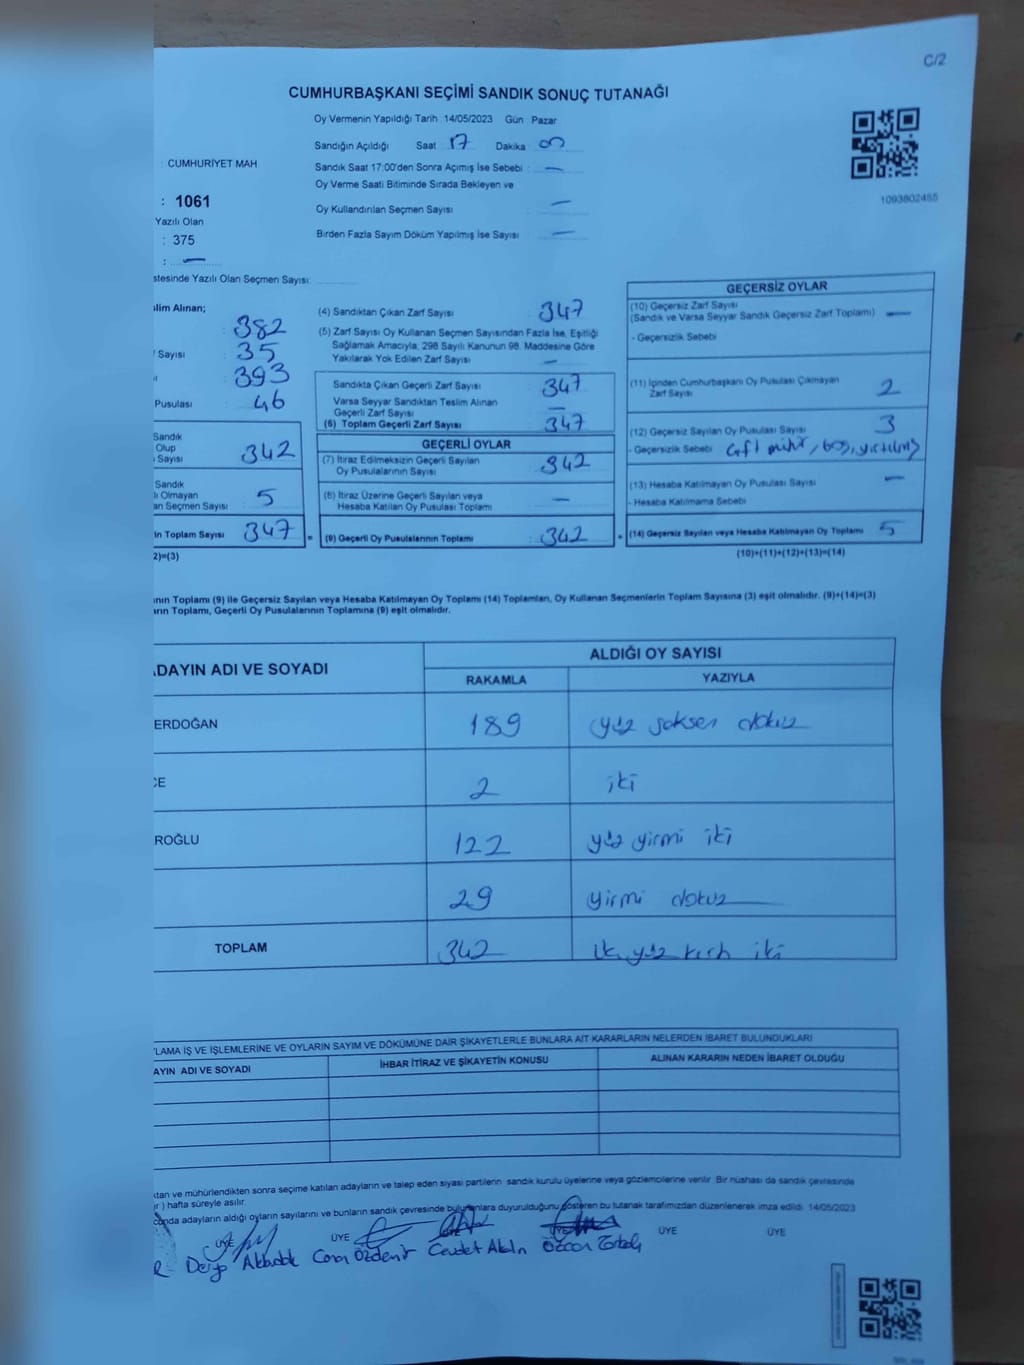 C/2
CUMHURBAŞKANI SEÇİMİ SANDIK SONUÇ TUTANAĞI
Oy Vermenin Yapıldığı Tarih : 14/05/2023 Gün : Pazar
Sandığın Açıldığı Saat : 17 Dakika :
: CUMHURİYET MAH
Sandık Saat 17:00'den Sonra Açımış İse Sebebi : —
Oy Verme Saati Bitiminde Sırada Bekleyen ve
Oy Kullandırılan Seçmen Sayısı : —
1093802455
: 1061
Yazılı Olan
: 375
Birden Fazla Sayım Döküm Yapılmış İse Sayısı : —
: —
stesinde Yazılı Olan Seçmen Sayısı:
slim Alınan;
: 382
Sayısı : 35
: 393
Pusulası : 46
Sandık
Olup
Sayısı 342
Sandık
lı Olmayan
an Seçmen Sayısı 5
ın Toplam Sayısı 347 =
2)=(3)
(4) Sandıktan Çıkan Zarf Sayısı : 347
(5) Zarf Sayısı Oy Kullanan Seçmen Sayısından Fazla İse, Eşitliği
Sağlamak Amacıyla; 298 Sayılı Kanunun 98. Maddesine Göre
Yakılarak Yok Edilen Zarf Sayısı : —
Sandıkta Çıkan Geçerli Zarf Sayısı : 347
Varsa Seyyar Sandıktan Teslim Alınan
Geçerli Zarf Sayısı : —
(6) Toplam Geçerli Zarf Sayısı : 347
GEÇERLİ OYLAR
(7) İtiraz Edilmeksizin Geçerli Sayılan
Oy Pusulalarının Sayısı : 342
(8) İtiraz Üzerine Geçerli Sayılan veya
Hesaba Katılan Oy Pusulası Toplamı : —
(9) Geçerli Oy Pusulalarının Toplamı : 342 +
GEÇERSİZ OYLAR
(10) Geçersiz Zarf Sayısı
(Sandık ve Varsa Seyyar Sandık Geçersiz Zarf Toplamı) : —
- Geçersizlik Sebebi :
(11) İçinden Cumhurbaşkanı Oy Pusulası Çıkmayan
Zarf Sayısı : 2
(12) Geçersiz Sayılan Oy Pusulası Sayısı : 3
- Geçersizlik Sebebi : Çift mühür, boş, yırtılmış
(13) Hesaba Katılmayan Oy Pusulası Sayısı : —
- Hesaba Katılmama Sebebi :
(14) Geçersiz Sayılan veya Hesaba Katılmayan Oy Toplamı 5
(10)+(11)+(12)+(13)=(14)
Toplamı (9) ile Geçersiz Sayılan veya Hesaba Katılmayan Oy Toplamı (14) Toplamları, Oy Kullanan Seçmenlerin Toplam Sayısına (3) eşit olmalıdır. (9)+(14)=(3)
Toplamı, Geçerli Oy Pusulalarının Toplamına (9) eşit olmalıdır.
ADAYIN ADI VE SOYADI ALDIĞI OY SAYISI
RAKAMLA YAZIYLA
ERDOĞAN 189 yüz seksen dokuz
CE 2 iki
ROĞLU 122 yüz yirmi iki
29 yirmi dokuz
TOPLAM 342 yüz iki
LAMA İŞ VE İŞLEMLERİNE VE OYLARIN SAYIM VE DÖKÜMÜNE DAİR ŞİKAYETLERLE BUNLARA AİT KARARLARIN NELERDEN İBARET BULUNDUKLARI
AYIN ADI VE SOYADI İHBAR İTİRAZ VE ŞİKAYETİN KONUSU ALINAN KARARIN NEDEN İBARET OLDUĞU
ktan ve mühürlendikten sonra seçime katılan adayların ve talep eden siyasi partilerin sandık kurulu üyelerine veya gözlemcilerine verilir. Bir nüshası da sandık çevresinde
) hafta süreyle asılır.
adayların aldığı oyların sayılarını ve bunların sandık çevresinde bulunanlara duyurulduğunu gösteren bu tutanak tarafımızdan düzenlenerek imza edildi. 14/05/2023
ÜYE ÜYE ÜYE ÜYE ÜYE ÜYE
Derya Can Özdemir Cevdet Özcan